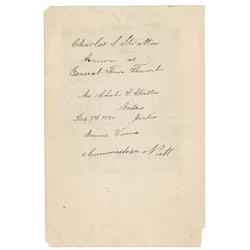 Charles S Stratton
Known as
General Tom Thumb
Mrs Charles S Stratton
Minnie Warren
Commodore Nutt